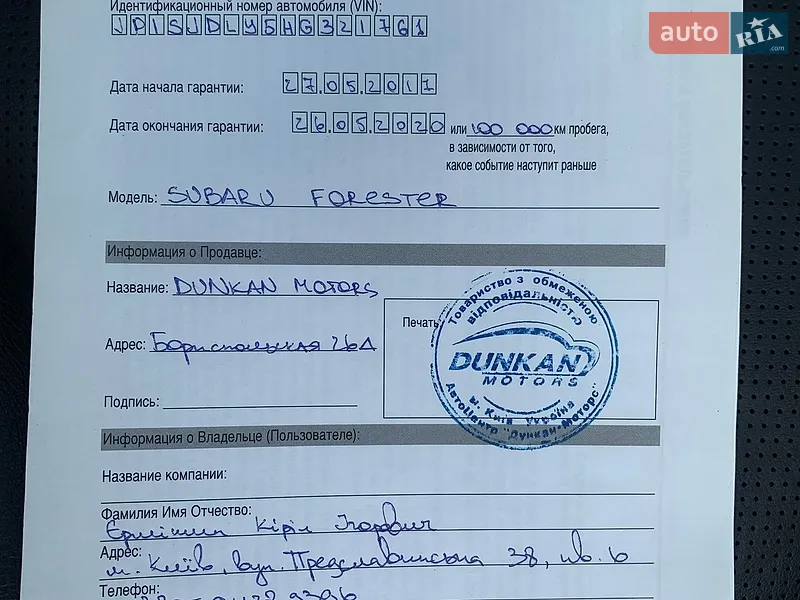 Идентификационный номер автомобиля (VIN):
JP1SJDLY5HG321761
auto RIA .com
Дата начала гарантии: 27.05.2017
Дата окончания гарантии: 26.05.2020 или 100 000 км пробега,
в зависимости от того,
какое событие наступит раньше
Модель: SUBARU FORESTER
Информация о Продавце:
Название: DUNKAN MOTORS
Адрес: Бориспольская 26Д
Печать:
Товариство з обмеженою
відповідальністю
DUNKAN
MOTORS
м. Київ Україна
АвтоЦентр "Дункан-Моторс"
Подпись:
Информация о Владельце (Пользователе):
Название компании:
Фамилия Имя Отчество:
Кіріл Ігорович
Адрес:
м. Київ, вул. Предславинська 38, кв. 6
Телефон: